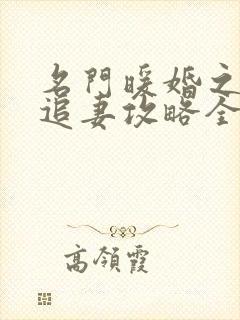 名門暖婚之
追妻攻略全
高領霞